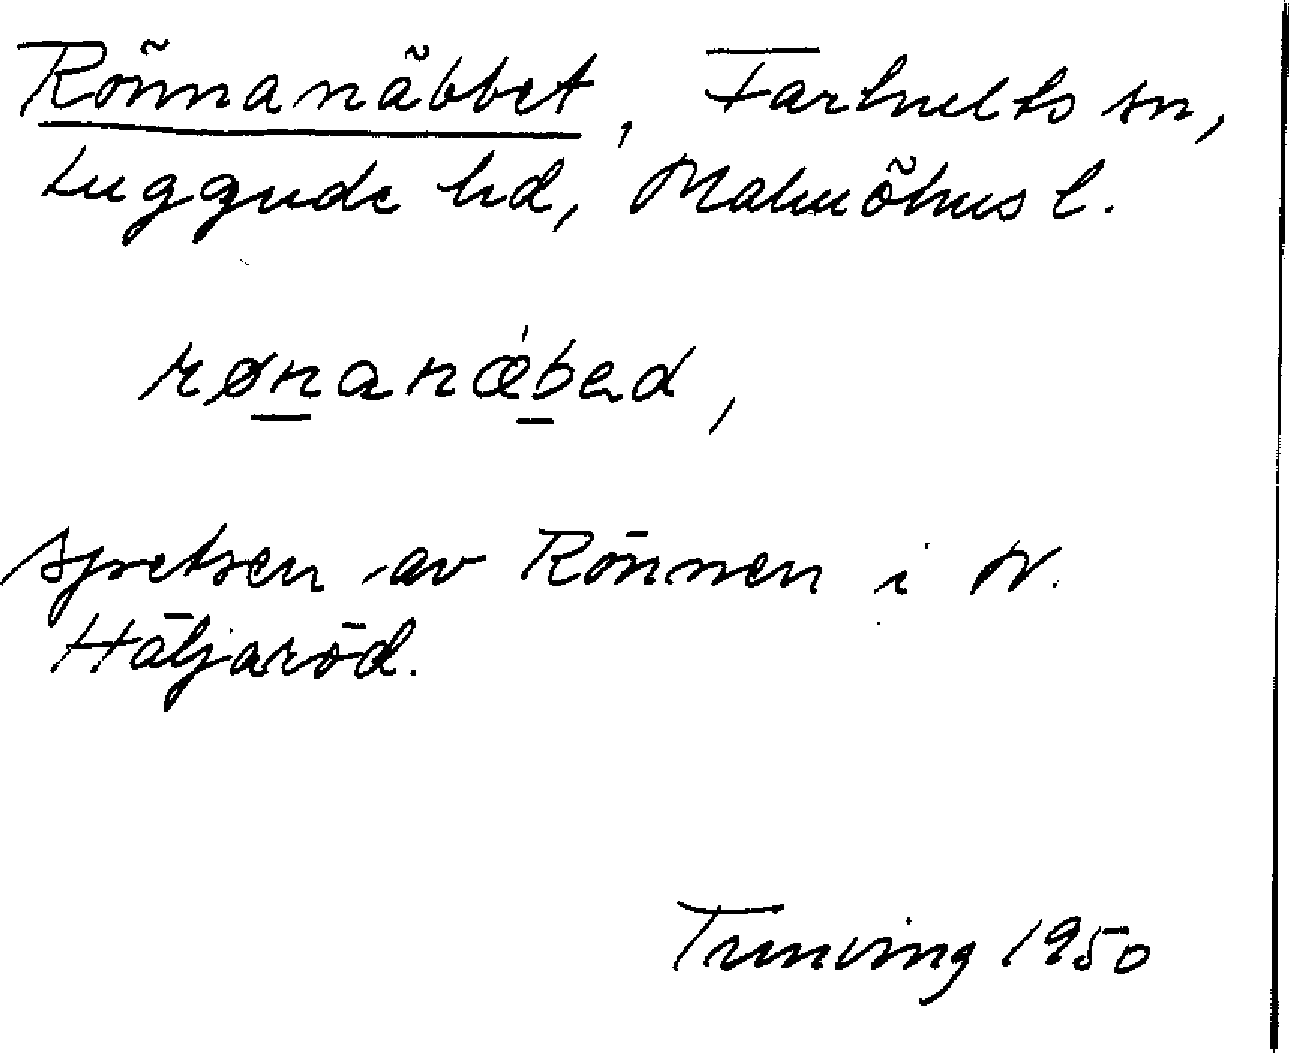 Rönnanäbbet, Farhults sn,
Luggude hd, Malmöhus l.
rønanǽbad,
spetsen av Rönnen i N.
Häljaröd.
Trunving 1950